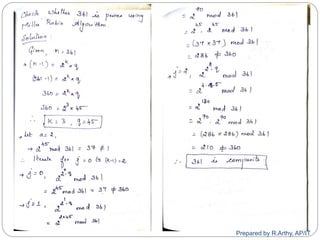 Check whether 361 is prime using
Miller Rabin Algorithm.
Solution:
Given, n = 361
→ (n-1) = 2^k × q
(361-1) = 2^k × q
360 = 2^k × q
360 = 2^3 × 45
∴ k = 3, q = 45
→ Let a = 2,
→ 2^45 mod 361 = 37 ≠ 1
→ Iterate for j = 0 to (k-1) = 2
→ j = 0, 2^(2^0·q) mod 361
= 2^45 mod 361 = 37 ≠ 360
→ j = 1, 2^(2^1·q) mod 361
= 2^(2×45) mod 361
= 2^90 mod 361
= 2^45 · 2^45 mod 361
= (37 × 37) mod 361
= 286 ≠ 360
→ j = 2, 2^(2^2·q) mod 361
= 2^(4·45) mod 361
= 2^180 mod 361
= 2^90 · 2^90 mod 361
= (286 × 286) mod 361
= 210 ≠ 360
∴ 361 is composite
Prepared by R.Arthy, AP/IT